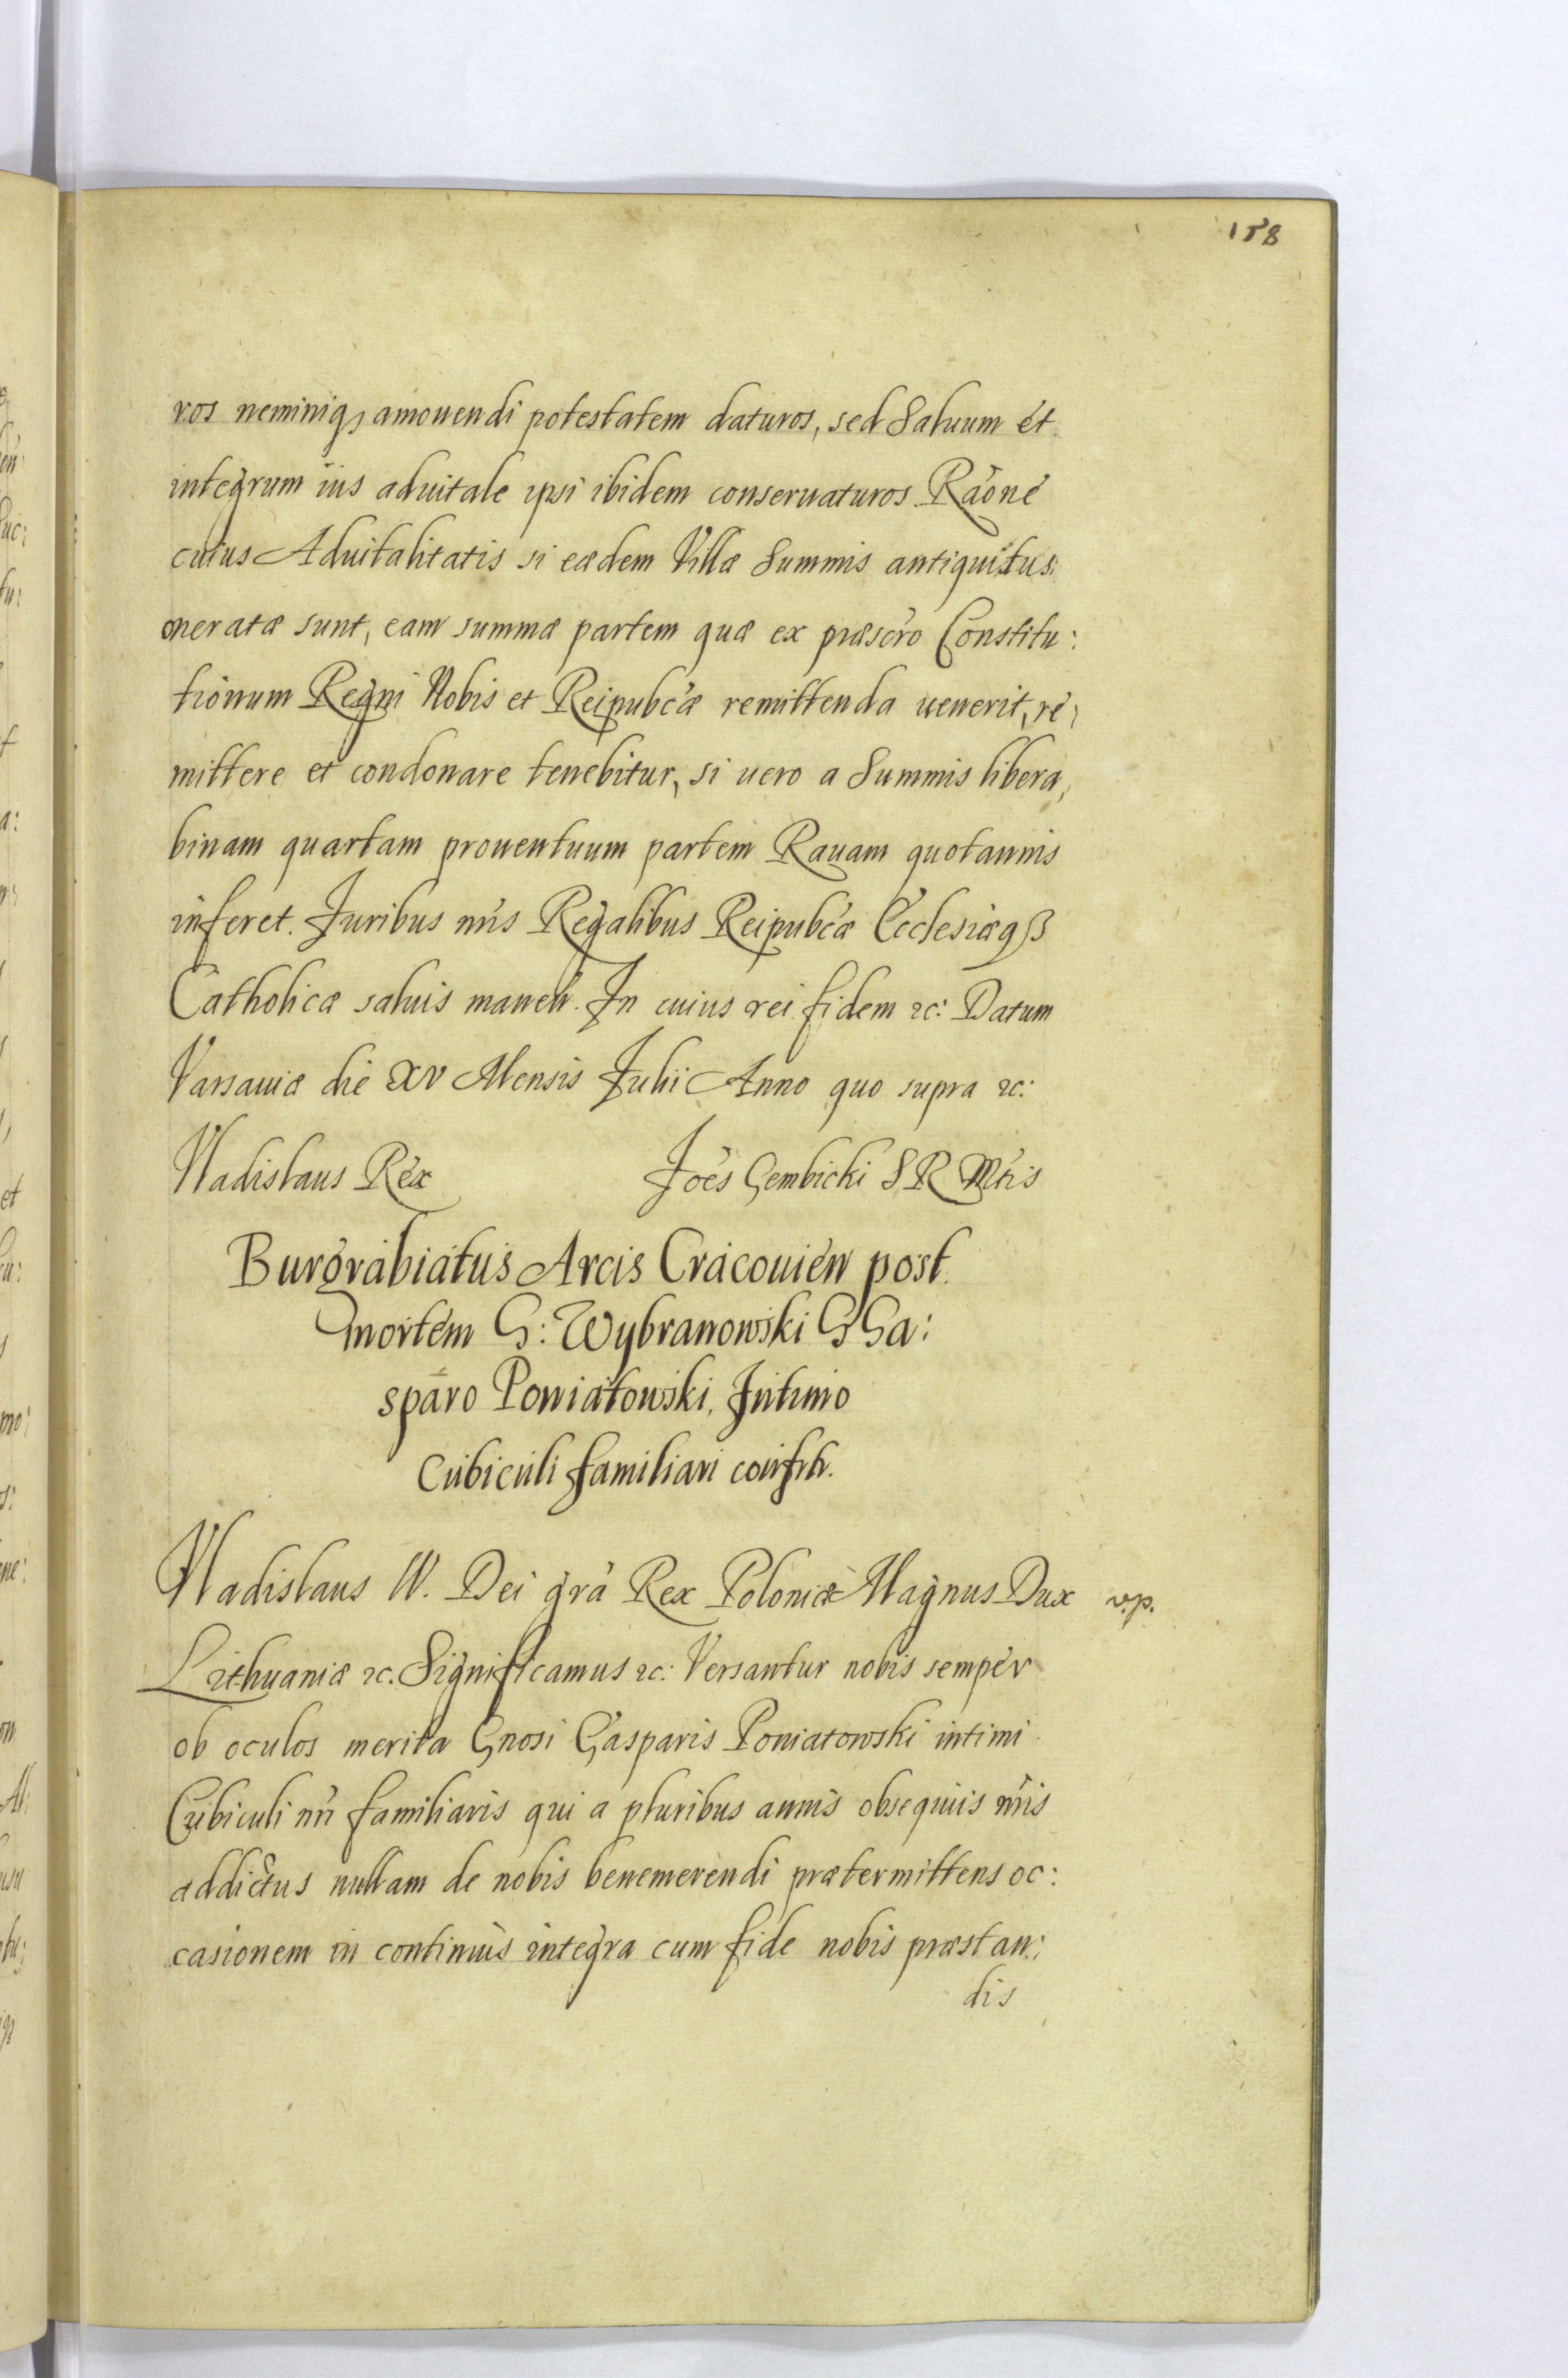 158
ros neminiq; amouendi potestatem daturos, sed Saluum et
integrum ius aduitale ipsi ibidem conseruaturos. Raone
cuius Aduitalitatis si eædem Villæ Summis antiquitus
oneratæ sunt, eam summæ partem quæ ex præscro Constitu:
tionum Regni Nobis et Reipubcæ remittenda uenerit, re:
mittere et condonare tenebitur, si uero a Summis liberæ,
binam quartam prouentuum partem Rauam quotannis
inferet. Juribus nris Regalibus Reipubcæ Ecclesiæqз
Catholicæ saluis manen. In cuius rei fidem rc: Datum
Varsauiæ die XV Mensis Julii Anno quo supra rc:
Vladislaus Rex Joes Gembicki S R Mtis
Burgrabiatus Arcis Cracouien post
mortem G: Wybranowski G Ga:
sparo Poniatowski, Intimo
Cubiculi familiari confrtr.
Vladislaus IV. Dei gra Rex Poloniæ Magnus Dux v.p.
Lithuaniæ rc. Significamus rc: Versantur nobis semper
ob oculos merita Gnosi Gasparis Poniatowski intimi
Cubiculi nri familiaris qui a pluribus annis obsequiis nris
addictus nullam de nobis benemerendi prætermittens oc:
casionem in continuis integra cum fide nobis præstan:
dis